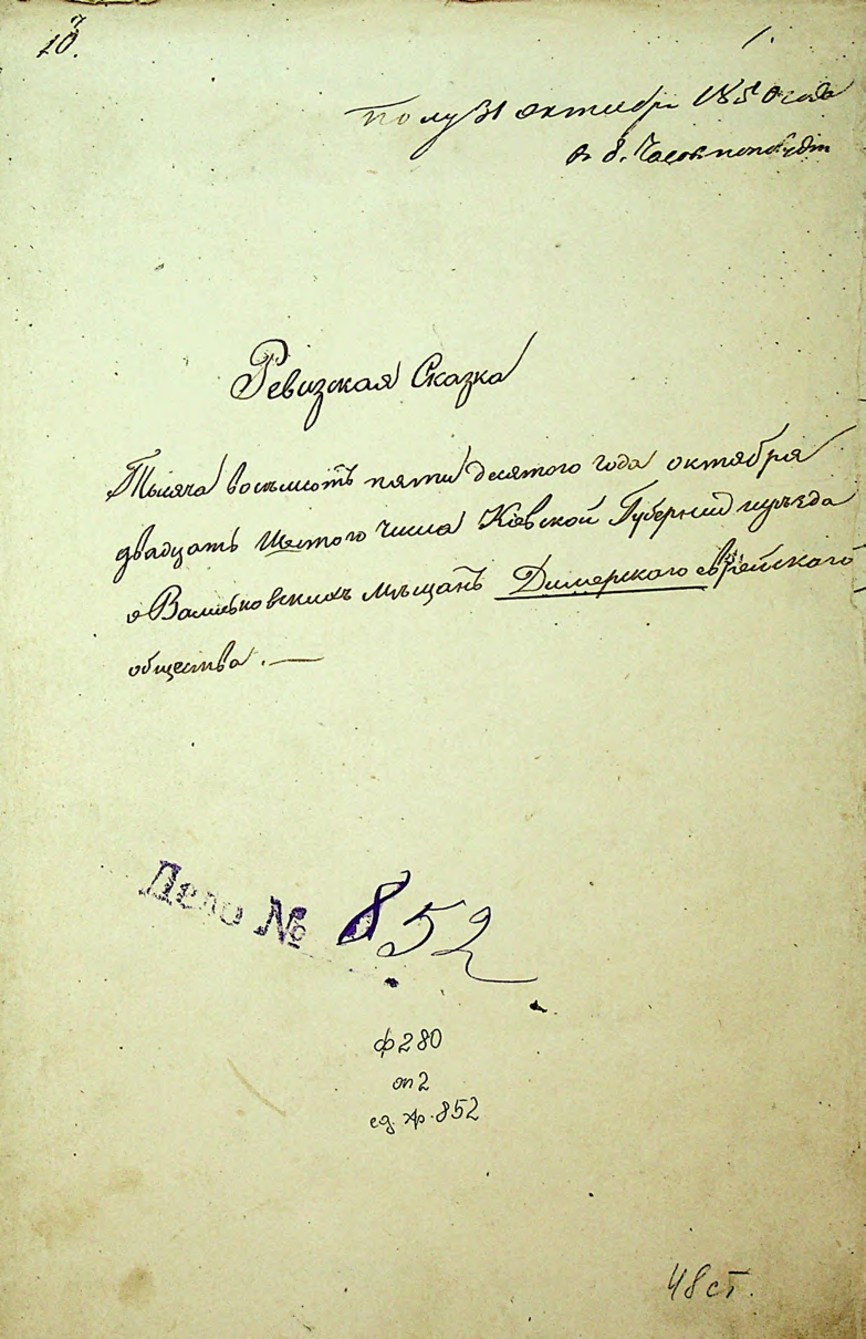 10.
1.
Полу 31 октября 1850 года
в 8. часов пополудни
Ревизская Сказка
Тысяча восемьсотъ пятидесятого года октября
двадцать шестого числа Кіевской Губерніи и уѣзда
о Васильковскихъ мѣщанъ Димерского еврейского
общества. —
Дело № 852
ф 280
оп 2
ед. хр. 852
48 ст.